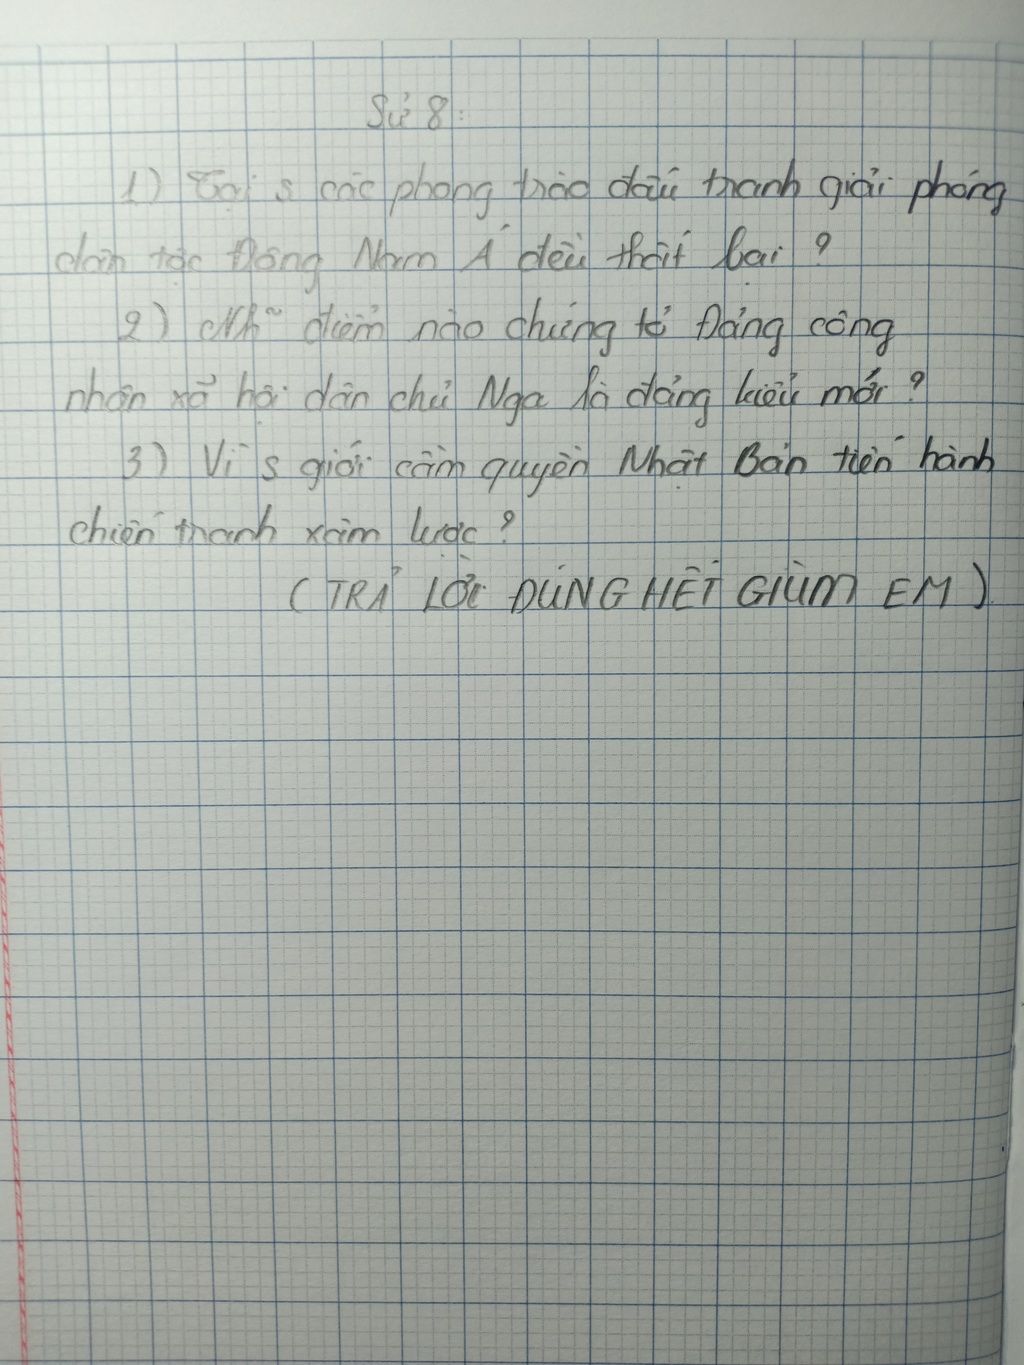 Sử 8:
1) Tại s các phong trào đấu tranh giải phóng
dân tộc Đông Nam Á đều thất bại ?
2) Nh~ điểm nào chứng tỏ Đảng công
nhân xã hội dân chủ Nga là đảng kiểu mới ?
3) Vì s giới cầm quyền Nhật Bản tiến hành
chiến tranh xâm lược ?
(TRẢ LỜI ĐÚNG HẾT GIÙM EM)